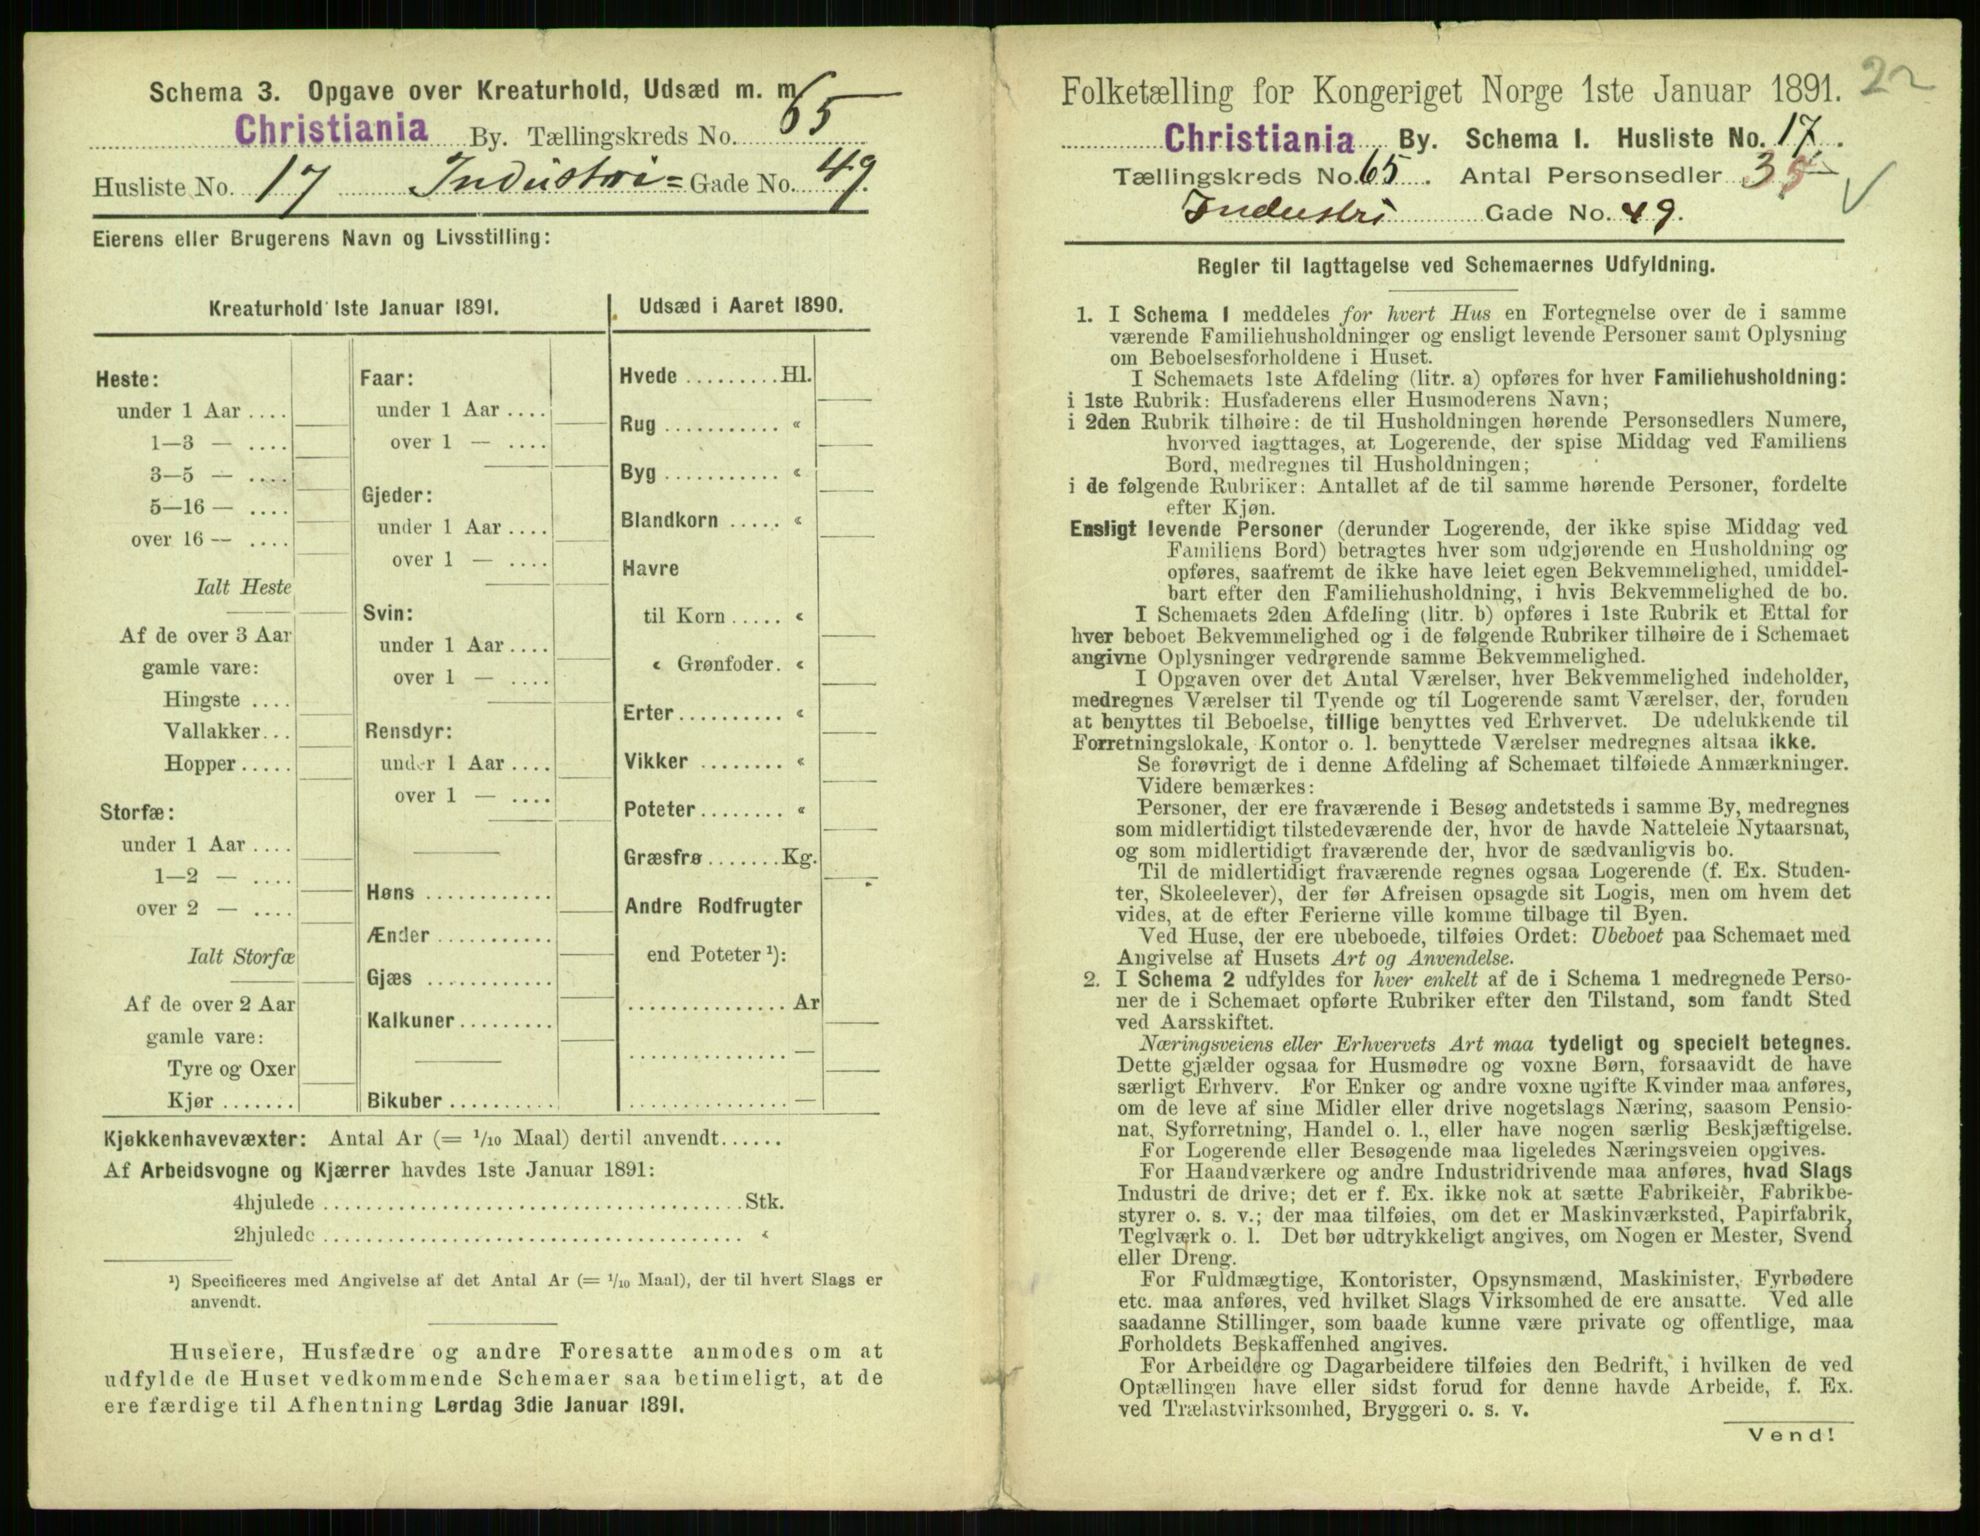 Schema 3. Opgave over Kreaturhold, Udsæd m. m.
Christiania By. Tællingskreds No. 65
Husliste No. 17 Industri= Gade No. 49.
Eierens eller Brugerens Navn og Livsstilling:
Kreaturhold 1ste Januar 1891.
Heste:
under 1 Aar ....
1—3 — ....
3—5 — ....
5—16 — ....
over 16 — ....
Ialt Heste
Af de over 3 Aar
gamle vare:
Hingste ....
Vallakker...
Hopper.....
Storfæ:
under 1 Aar ....
1—2 — ....
over 2 — ....
Ialt Storfæ
Af de over 2 Aar
gamle vare:
Tyre og Oxer
Kjør.......
Faar:
under 1 Aar ....
over 1 — ....
Gjeder:
under 1 Aar ....
over 1 — ....
Svin:
under 1 Aar ....
over 1 — ....
Rensdyr:
under 1 Aar ....
over 1 — ....
Høns ............
Ænder ...........
Gjæs ............
Kalkuner.........
Bikuber ..........
Udsæd i Aaret 1890.
Hvede .........Hl.
Rug ........... «
Byg ........... «
Blandkorn ..... «
Havre
til Korn ..... «
« Grønfoder. «
Erter.......... «
Vikker ........ «
Poteter........ «
Græsfrø .......Kg.
Andre Rodfrugter
end Poteter ¹):
...............Ar
............... —
............... —
Kjøkkenhavevæxter: Antal Ar (= ¹/₁₀ Maal) dertil anvendt......
Af Arbeidsvogne og Kjærrer havdes 1ste Januar 1891:
4hjulede .......................................Stk.
2hjulede ....................................... «
¹) Specificeres med Angivelse af det Antal Ar (= ¹/₁₀ Maal), der til hvert Slags er
anvendt.
Huseiere, Husfædre og andre Foresatte anmodes om at
udfylde de Huset vedkommende Schemaer saa betimeligt, at de
ere færdige til Afhentning Lørdag 3die Januar 1891.
22
Folketælling for Kongeriget Norge 1ste Januar 1891.
Christiania By. Schema I. Husliste No. 17.
Tællingskreds No. 65. Antal Personsedler 35
Industri Gade No. 49.
Regler til Iagttagelse ved Schemaernes Udfyldning.
1. I Schema I meddeles for hvert Hus en Fortegnelse over de i samme
værende Familiehusholdninger og ensligt levende Personer samt Oplysning
om Beboelsesforholdene i Huset.
I Schemaets 1ste Afdeling (litr. a) opføres for hver Familiehusholdning:
i 1ste Rubrik: Husfaderens eller Husmoderens Navn;
i 2den Rubrik tilhøire: de til Husholdningen hørende Personsedlers Numere,
hvorved iagttages, at Logerende, der spise Middag ved Familiens
Bord, medregnes til Husholdningen;
i de følgende Rubriker: Antallet af de til samme hørende Personer, fordelte
efter Kjøn.
Ensligt levende Personer (derunder Logerende, der ikke spise Middag ved
Familiens Bord) betragtes hver som udgjørende en Husholdning og
opføres, saafremt de ikke have leiet egen Bekvemmelighed, umiddel-
bart efter den Familiehusholdning, i hvis Bekvemmelighed de bo.
I Schemaets 2den Afdeling (litr. b) opføres i 1ste Rubrik et Ettal for
hver beboet Bekvemmelighed og i de følgende Rubriker tilhøire de i Schemaet
angivne Oplysninger vedrørende samme Bekvemmelighed.
I Opgaven over det Antal Værelser, hver Bekvemmelighed indeholder,
medregnes Værelser til Tyende og til Logerende samt Værelser, der, foruden
at benyttes til Beboelse, tillige benyttes ved Erhvervet. De udelukkende til
Forretningslokale, Kontor o. l. benyttede Værelser medregnes altsaa ikke.
Se forøvrigt de i denne Afdeling af Schemaet tilføiede Anmærkninger.
Videre bemærkes:
Personer, der ere fraværende i Besøg andetsteds i samme By, medregnes
som midlertidigt tilstedeværende der, hvor de havde Natteleie Nytaarsnat,
og som midlertidigt fraværende der, hvor de sædvanligvis bo.
Til de midlertidigt fraværende regnes ogsaa Logerende (f. Ex. Studen-
ter, Skoleelever), der før Afreisen opsagde sit Logis, men om hvem det
vides, at de efter Ferierne ville komme tilbage til Byen.
Ved Huse, der ere ubeboede, tilføies Ordet: Ubeboet paa Schemaet med
Angivelse af Husets Art og Anvendelse.
2. I Schema 2 udfyldes for hver enkelt af de i Schema 1 medregnede Perso-
ner de i Schemaet opførte Rubriker efter den Tilstand, som fandt Sted
ved Aarsskiftet.
Næringsveiens eller Erhvervets Art maa tydeligt og specielt betegnes.
Dette gjælder ogsaa for Husmødre og voxne Børn, forsaavidt de have
særligt Erhverv. For Enker og andre voxne ugifte Kvinder maa anføres,
om de leve af sine Midler eller drive nogetslags Næring, saasom Pensio-
nat, Syforretning, Handel o. l., eller have nogen særlig Beskjæftigelse.
For Logerende eller Besøgende maa ligeledes Næringsveien opgives.
For Haandværkere og andre Industridrivende maa anføres, hvad Slags
Industri de drive; det er f. Ex. ikke nok at sætte Fabrikeier, Fabrikbe-
styrer o. s. v.; der maa tilføies, om det er Maskinværksted, Papirfabrik,
Teglværk o. l. Det bør udtrykkeligt angives, om Nogen er Mester, Svend
eller Dreng.
For Fuldmægtige, Kontorister, Opsynsmænd, Maskinister, Fyrbødere
etc. maa anføres, ved hvilket Slags Virksomhed de ere ansatte. Ved alle
saadanne Stillinger, som baade kunne være private og offentlige, maa
Forholdets Beskaffenhed angives.
For Arbeidere og Dagarbeidere tilføies den Bedrift, i hvilken de ved
Optællingen have eller sidst forud for denne havde Arbeide, f. Ex.
ved Trælastvirksomhed, Bryggeri o. s. v.
Vend!